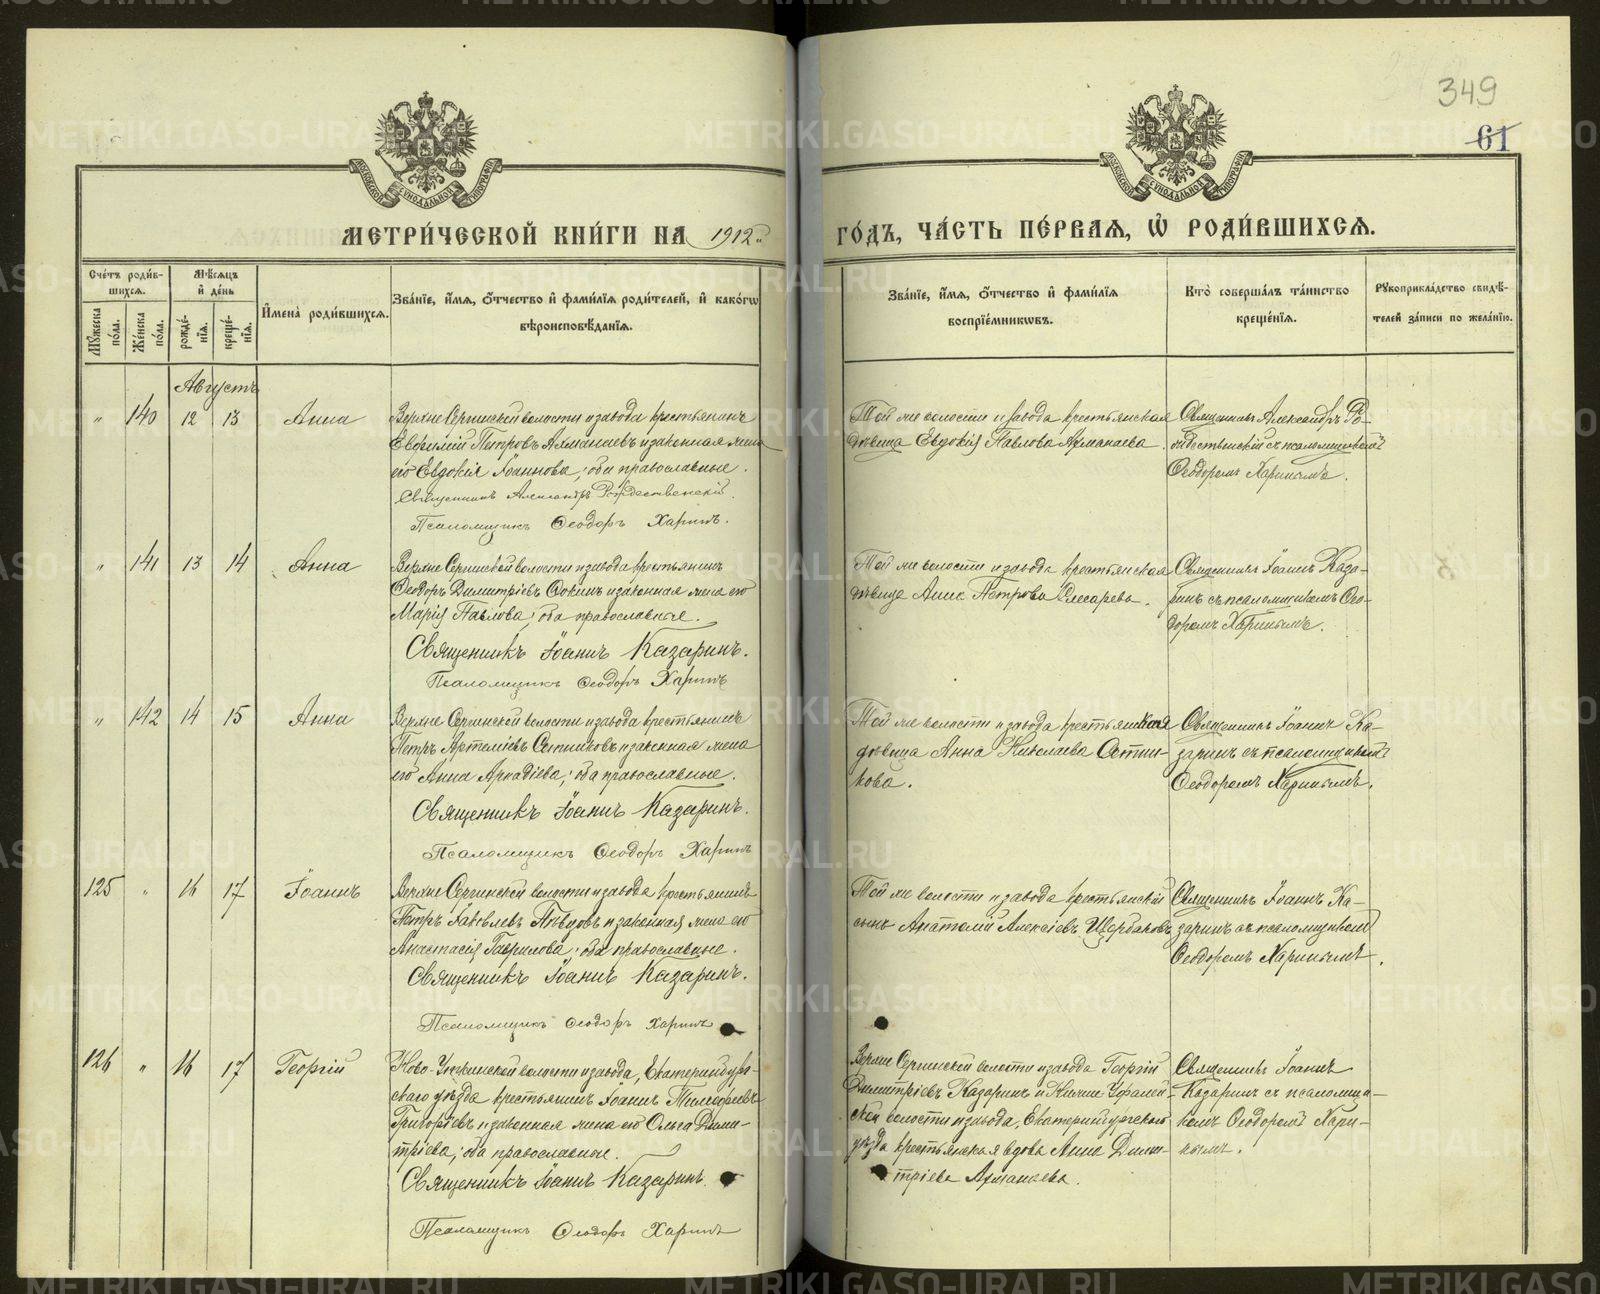 349
61
МЕТРИ́ЧЕСКОЙ КНИ́ГИ НА 1912 й
ГО́ДЪ, ЧА́СТЬ ПЕ́РВАЯ, Ѡ҆ РОДИ́ВШИХСЯ.
Сче́тъ роди́в-
шихся.
Мѣ́сяцъ
и҆ де́нь
Мꙋ́жеска по́ла.
Же́нска по́ла.
рожде́-
нїя.
креще́-
нїя.
И҆мена̀ роди́вшихся.
Зва́нїе, и҆́мя, ѻ҆́тчество и҆ фами́лїя роди́телей, и҆ како́гѡ
вѣроисповѣ́данїя.
Зва́нїе, и҆́мя, ѻ҆́тчество и҆ фами́лїя
воспрїе́мникѡвъ.
Кто̀ соверша́лъ та́инство
креще́нїя.
Рꙋкоприкла́дство свидѣ́-
телей за́писи по жела́нїю.
Августъ
" 140 12 13 Анна
Верхне Сергинской волости и завода крестьянинъ
Евфимій Петровъ Ахманаевъ и законная жена
его Евдокія Іоаннова; оба православные.
Священникъ Александръ Рождественскій.
Псаломщикъ Ѳеодоръ Харинъ.
Той же волости и завода крестьянская
дѣвица Евдокія Павлова Ахманаева.
Священникъ Александръ Ро-
ждественскій съ псаломщикомъ
Ѳеодоромъ Харинымъ.
" 141 13 14 Анна
Верхне Сергинской волости и завода крестьянинъ
Ѳеодоръ Димитріевъ и законная жена его
Марія Павлова; оба православные.
Священникъ Іоаннъ Казаринъ.
Псаломщикъ Ѳеодоръ Харинъ
Той же волости и завода крестьянская
дѣвица Анна Петрова Слесарева.
Священникъ Іоаннъ Каза-
ринъ съ псаломщикомъ Ѳео-
доромъ Харинымъ.
" 142 14 15 Анна
Верхне Сергинской волости и завода крестьянинъ
Петръ Артеміевъ и законная жена
его Анна Аркадіева; оба православные.
Священникъ Іоаннъ Казаринъ.
Псаломщикъ Ѳеодоръ Харинъ
Той же волости и завода крестьянская
дѣвица Анна Николаева
кова.
Священникъ Іоаннъ Ка-
заринъ съ псаломщикомъ
Ѳеодоромъ Харинымъ.
125 " 16 17 Іоаннъ
Верхне Сергинской волости и завода крестьянинъ
Петръ Іаковлевъ и законная жена его
Анастасія Гаврилова; оба православные.
Священникъ Іоаннъ Казаринъ.
Псаломщикъ Ѳеодоръ Харинъ
Той же волости и завода крестьянскій
сынъ Анатолій Алексіевъ Щербаковъ
Священникъ Іоаннъ Ка-
заринъ съ псаломщикомъ
Ѳеодоромъ Харинымъ.
126 " 16 17 Георгій
волости и завода, Екатеринбург-
скаго уѣзда крестьянинъ Іоаннъ Тимоѳеевъ
Григорьевъ и законная жена его Ольга Дими-
тріева; оба православные.
Священникъ Іоаннъ Казаринъ.
Псаломщикъ Ѳеодоръ Харинъ
Верхне Сергинской волости и завода Георгій
Димитріевъ Казаринъ и Нижне Уфалей-
ской волости и завода, Екатеринбургскаго
уѣзда крестьянская вдова Анна Дими-
тріева Ахманаева.
Священникъ Іоаннъ
Казаринъ съ псаломщи-
комъ Ѳеодоромъ Хари-
нымъ.